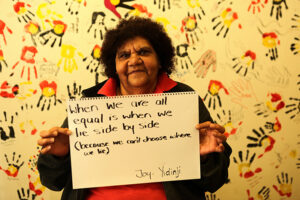 When we are all
equal is when we
lie side by side
(because we can't choose where
we lie)
Joy. Yidinji